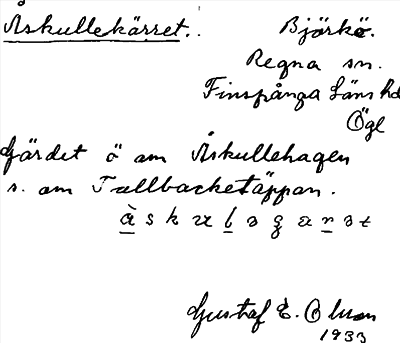 Åskullekärret.
Björkö.
Regna sn.
Finspånga Läns hd
Ögl
Gärdet ö om Åskullehagen
s. om Tallbackstäppan.
Gustaf E. Olson
1933